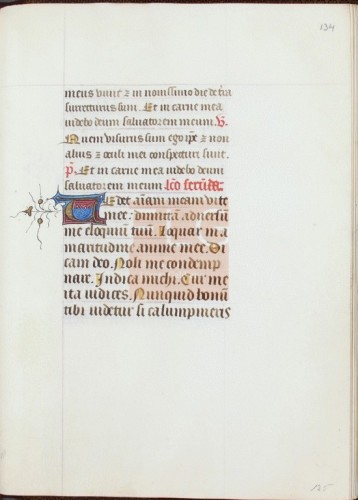 134
meus viuit ⁊ in nouissimo die de t̄ra
surrecturus sum. Et in carne mea
videbo deum saluatorem meum. V.
Quem visurus sum ego ip̄e ⁊ non
alius ⁊ oculi mei conspecturi sunt.
P. Et in carne mea videbo deum
saluatorem meum. lc̄o secūda.
Tedet aīam meam vite
mee: dimittā aduersū
me eloquiū tuū. Loquar in a
maritudine anime mee. Di
cam deo. Noli me condemp
nare. Indica michi. Cur me
ita iudices. Nunquid bonū
tibi videtur si calumpnieris